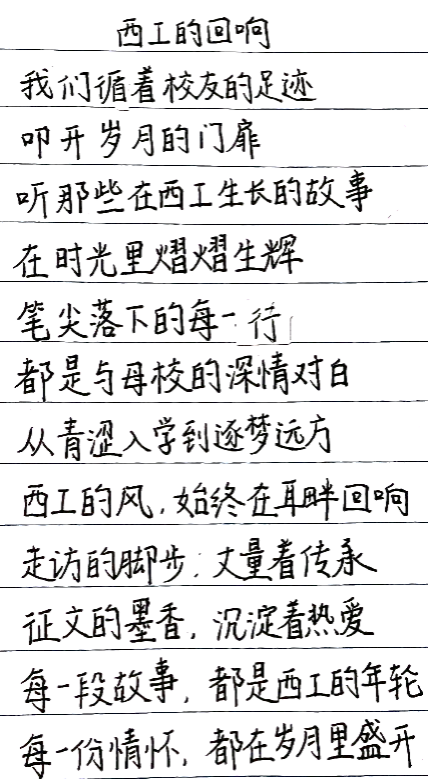 西工的回响
我们循着校友的足迹
叩开岁月的门扉
听那些在西工生长的故事
在时光里熠熠生辉
笔尖落下的每一行
都是与母校的深情对白
从青涩入学到逐梦远方
西工的风,始终在耳畔回响
走访的脚步,丈量着传承
征文的墨香,沉淀着热爱
每一段故事,都是西工的年轮
每一份情怀,都在岁月里盛开